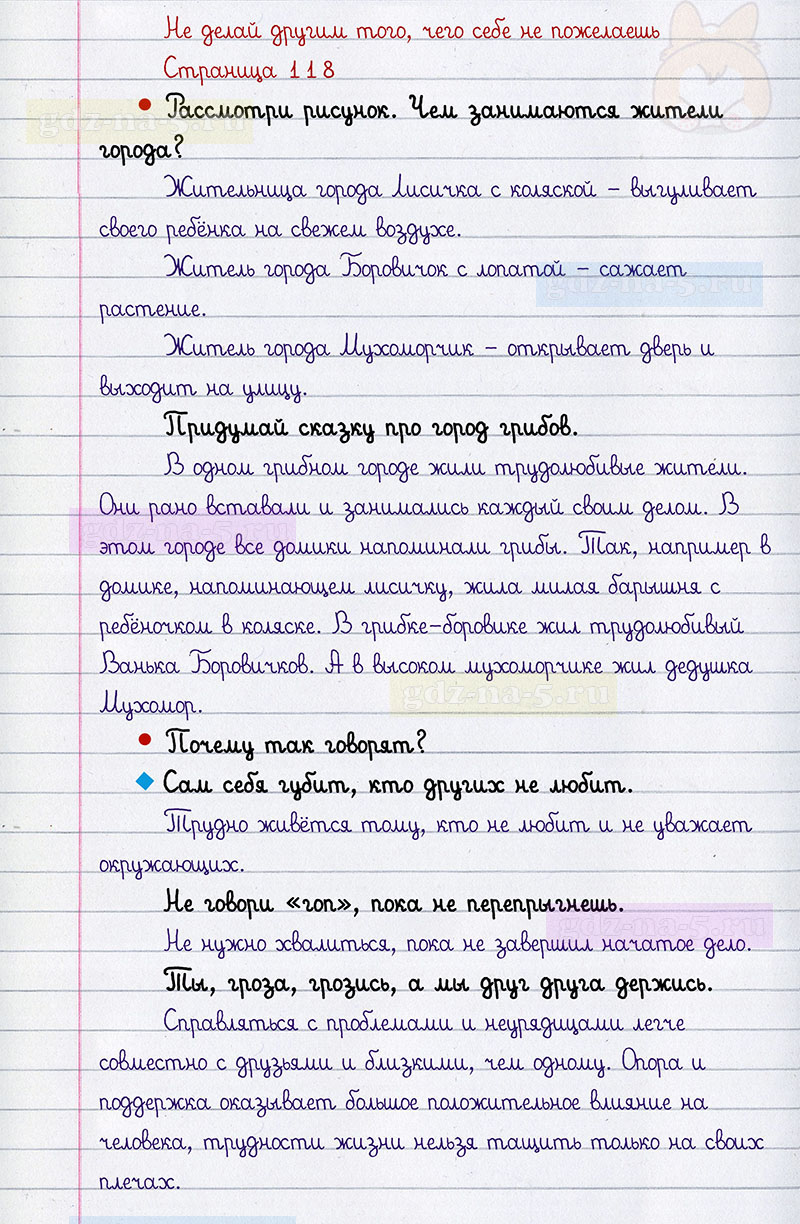 Не делай другим того, чего себе не пожелаешь
Страница 118
• Рассмотри рисунок. Чем занимаются жители
города?
gdz-na-5.ru
Жительница города Лисичка с коляской – выгуливает
своего ребёнка на свежем воздухе.
Житель города Боровичок с лопатой – сажает
gdz-na-5.ru
растение.
Житель города Мухоморчик – открывает дверь и
выходит на улицу.
Придумай сказку про город грибов.
В одном грибном городе жили трудолюбивые жители.
Они рано вставали и занимались каждый своим делом. В
gdz-na-5.ru
этом городе все домики напоминали грибы. Так, например в
домике, напоминающем лисичку, жила милая барышня с
ребёночком в коляске. В грибке-боровике жил трудолюбивый
Ванька Боровичков. А в высоком мухоморчике жил дедушка
gdz-na-5.ru
Мухомор.
• Почему так говорят?
Сам себя губит, кто других не любит.
Трудно живётся тому, кто не любит и не уважает
окружающих.
Не говори «гоп», пока не перепрыгнешь.
gdz-na-5.ru
Не нужно хвалиться, пока не завершил начатое дело.
Ты, гроза, грозись, а мы друг друга держись.
Справляться с проблемами и неурядицами легче
совместно с друзьями и близкими, чем одному. Опора и
поддержка оказывает большое положительное влияние на
человека, трудности жизни нельзя тащить только на своих
плечах.